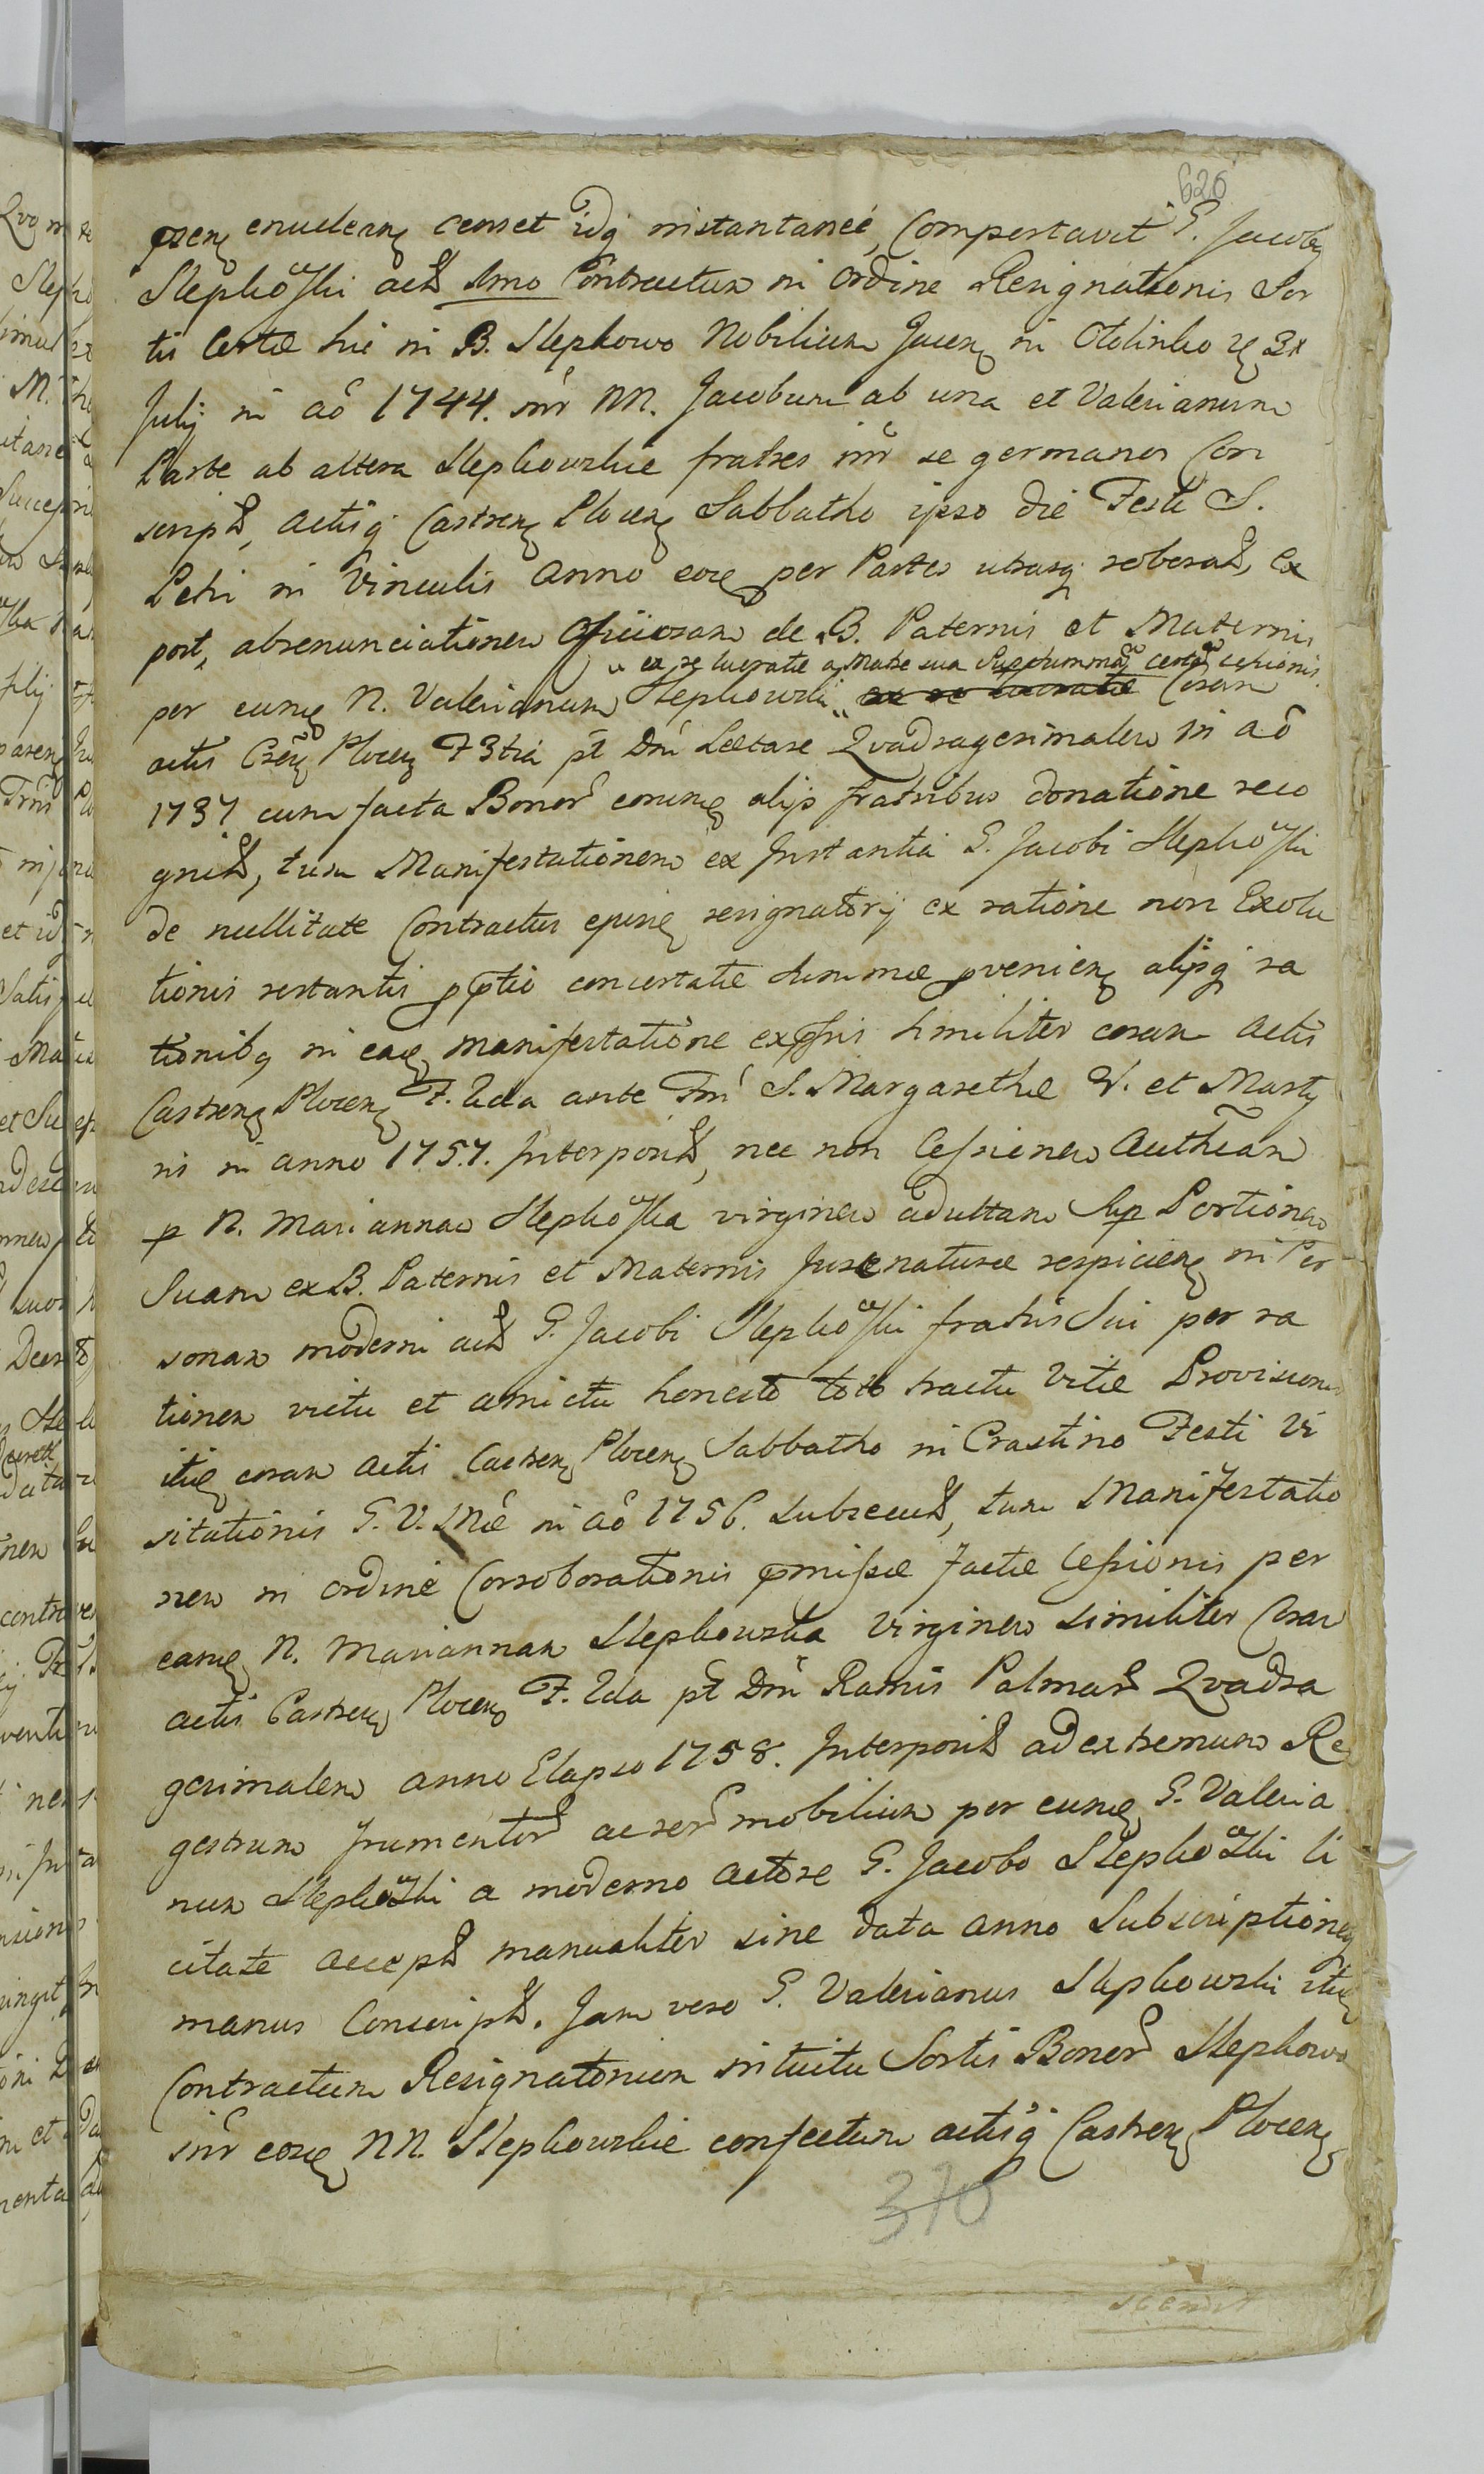 626
enucleans censet idq instantanee, Comportavit G. Jacobg
Slepkowski Imo Contractum in ordine Resignationis Sor
tis Certæ hic in B. Slepkowo Nobilium Jacen in Otolinko
Julij in aõ 1744. intr NN. Jacobum ab una et Valerianum
Parte ab altera Slepkowskie fratres intr se germanos Con
script, actisq Castren Plocen Sabbatho ipso die Festi S.
Petri in Vinculis Anno per Partes utrasq roborat, Ex
post, abrenunciationem de B. Paternis et Maternis
ex se lucratæ a Matre sua certæ cessionis
per eund N. Valerianum Slepkowski ex se Coram
actis Plocen F 3tia pt Dni Lætare Qvadragesimalem in aõ
1737 cum facta Bonor eorund alijs fratribus donatione reco
gnit, tum Manifestationem ex Instantia G. Jacobi Slepkowski
de nullitate Contractus ejusd resignatorij ex ratione non Exolu
tionis restantis concertatæ Summæ pvenien alijsq ra
tionibq in ead manifestatione similiter coram Actis
Castren Plocen F. 2da ante Fm S. Margarethæ V. et Marty
ris in anno 1757. Interposit, nec non Cessionem Autham
p N. Mariannam Slepkowska virginem adultam Sup Portionem
Suam ex B. Paternis et Maternis Jure naturæ respicien in Per
sonam moderni act G. Jacobi Slepkowski fratris Sui per ra
tionem victu et amictu honesto toto tractu Vitæ Provisionis
itid coram actis Castren Plocen Sabbatho in Crastino Festi Vi
sitationis G. V. Mæ in aõ 1756. subsecut, tum Manifestatio
nem in ordine Corroborationis pmissæ factæ Cessionis per
eand N. Mariannam Slepkowska Virginem similiter Coram
actis Castren Plocen F. 2da pt Dm Ramis Palmar Qvadra
gesimalem anno Elapso 1758. Interposit ad extremum Re
gestrum frumentor ac rer mobilium per eund G. Valeria
num Slepkowski a moderno Actore G. Jacobo Slepkowski li
citate accept manualiter sine data anno Subscriptioneq
manus Conscript. Jam vero G. Valerianus Slepkowski itid
Contractum Resignatorium intuitu Sortis Bonor Slepkowo
intr eosd NN. Slepkowskie confectum actisq Castren Plocen
370